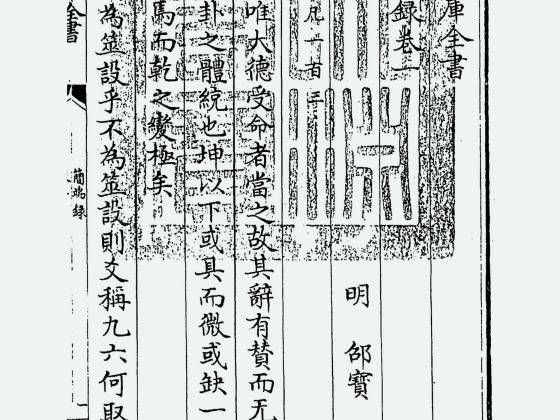 庫全書
録卷一
明 邵寳
凡一百三
唯大德受命者當之故其辭有賛而无
卦之體統也坤以下或具而微或缺一
馬而乾之變極矣
為筮設乎不為筮設則爻稱九六何取
全書
簡端録